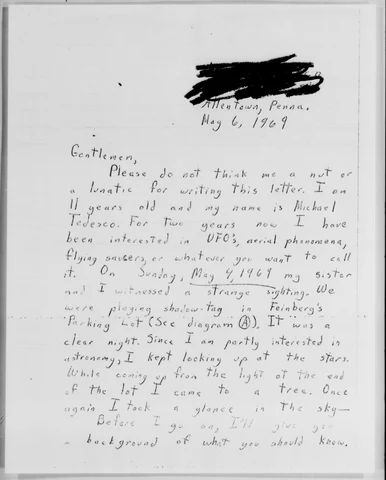 Allentown, Penna.
May 6, 1969
Gentlemen,
Please do not think me a nut or
a lunatic for writing this letter. I am
11 years old and my name is Michael
Tedesco. For two years now I have
been interested in UFO's, aerial phenomena,
flying saucers, or whatever you want to call
it. On Sunday, May 4, 1969 my sister
and I witnessed a strange sighting. We
were playing shadow-tag in Feinberg's
Parking Lot (See diagram A). It was a
clear night. Since I am partly interested in
astronomy, I kept looking up at the stars.
While coming up from the light at the end
of the lot I came to a tree. Once
again I took a glance in the sky—
Before I go on, I'll give you
a background of what you should know.